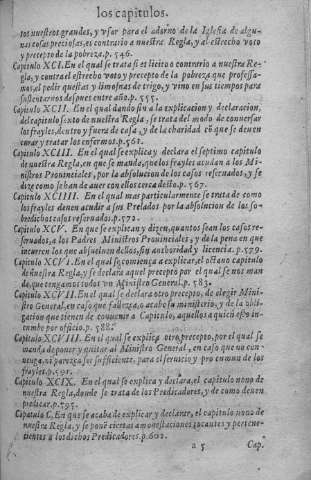 los capitulos.
tos nuestros grandes, y vsar para el adorno de la Iglesia de algu-
nas cosas preciosas, es contrario a nuestra Regla, y al estrecho voto
y precepto de la pobreza. p. 546.
Capitulo XCI. En el qual se trata si es licito o contrario a nuestra Re-
gla, y contra el estrecho voto y precepto de la pobreza que professa-
mos, el pedir questas y limosnas de trigo, y vino en sus tiempos para
sustentarnos despues entre año. p. 555.
Capitulo XCII. En el qual dando fin a la explicacion y declaracion,
del capitulo sexto de nuestra Regla, se trata del modo de conuersar
los frayles, dentro y fuera de casa, y de la charidad cō que se deuen
curar y tratar los enfermos. p. 561.
Capitulo XCIII. En el qual se explica y declara el septimo capitulo
de nuestra Regla, en que se manda, que los frayles acudan a los Mi-
nistros Prouinciales, por la absolucion de los casos reseruados, y se
dize como se han de auer con ellos cerca desto. p. 567.
Capitulo XCIIII. En el qual mas particularmente se trata de como
los frayles deuen acudir a sus Prelados por la absolucion de los so-
bredichos casos reseruados. p. 572.
Capitulo XCV. En que se explican y dizen, quantos sean los casos re-
seruados, a los Padres Ministros Prouinciales, y de la pena en que
incurren los que absueluen dellos, sin authoridad y licencia. p. 579.
Capitulo XCVI. En el qual se comiença a explicar, el octauo capitulo
de nuestra Regla, y se declara aquel precepto por el qual se nos man
da, que tengamos todos vn Ministro General. p. 583.
Capitulo XCVII. En el qual se declara otro precepto, de elegir Mini-
stro General, en caso que fallezca, o acabe su ministerio, y de la obli-
gacion que tienen de conuenir a Capitulo, aquellos a quien esto in-
cumbe por officio. p. 588.
Capitulo XCVIII. En el qual se explica otro precepto, por el qual se
manda deponer y quitar al Ministro General, en caso que no con-
uenga, ni parezca ser sufficiente, para el seruicio y pro comun de los
frayles. p. 591.
Capitulo XCIX. En el qual se explica y declara, el capitulo nono de
nuestra Regla, donde se trata de los Predicadores, y de como deuen
predicar. p. 595.
Capitulo C. En que se acaba de explicar y declarar, el capitulo nono de
nuestra Regla, y se ponē ciertas amonestaciones tocantes y pertene-
cientes a los dichos Predicadores. p. 602.
a 5 Cap.